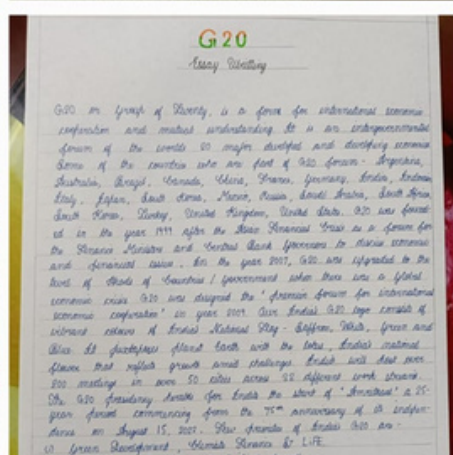 G20
Essay Writting
G20 or Group of Twenty, is a forum for international economic
cooperation and mutual understanding. It is an intergovernmental
forum of the worlds 20 major developed and developing economies
Some of the countries who are part of G20 forum - Argentina,
Australia, Brazil, Canada, China, France, Germany, India, Indonesia
Italy, Japan, South Korea, Mexico, Russia, Saudi Arabia, South Africa
South Korea, Turkey, United Kingdom, United States. G20 was found-
ed in the year 1999 after the Asian Financial Crisis as a forum for
the Finance Ministers and Central Bank Governors to discuss economic
and financial issue. In the year 2007, G20 was upgraded to the
level of Heads of Countries / Government when there was a Global
economic crisis G20 was designed the "premier forum for international
economic cooperation" in year 2009. Our India's G20 logo consists of
vibrant colours of India's National Flag - Saffron, White, Green and
Blue. It juxtaposes planet Earth with the lotus, India's national
flower that reflects growth amid challenges. India will host over
200 meetings in over 50 cities across 32 different work streams.
The G20 Presidency for India the start of "Amritkaal" a 25-
year period commencing from the 75th anniversary of its indepen-
dence on August 15, 2022. Few priorities of India's G20 are -
i) Green Development, Climate Finance & LiFE